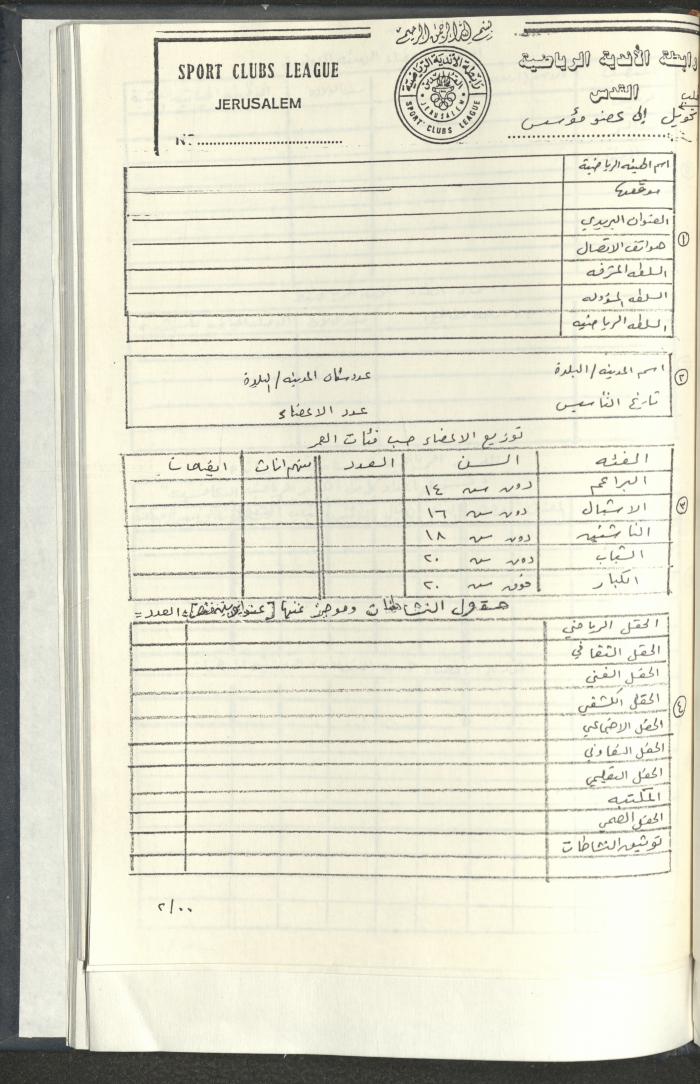 بسم الله الرحمن الرحيم
رابطة الأندية الرياضية
القدس
SPORT CLUBS LEAGUE
JERUSALEM
Nº
رابطة الأندية الرياضية
القدس
JERUSALEM
SPORT CLUBS LEAGUE
طلب
تحويل إلى عضو مؤسس
١
اسم الهيئة الرياضية
موقعها
العنوان البريدي
هواتف الاتصال
السلطة المشرفه
السلطه المسؤوله
السلطه الرياضيه
٢
اسم المدينه / البلدة
عدد سكان المدينه / البلدة
تاريخ التأسيس
عدد الاعضاء
توزيع الاعضاء حسب فئات العمر
٣
الفئه السن العدد منهم اناث ايضاحات
البراعم دون سن ١٤
الاشبال دون سن ١٦
الناشئين دون سن ١٨
الشباب دون سن ٢٠
الكبار فوق سن ٢٠
حقول النشاطات وموجز عنها العدد
٤
الحقل الرياضي
الحقل الثقافي
الحقل الفني
الحقل الكشفي
الحقل الاجتماعي
الحقل التعاوني
الحقل التعليمي
المكتبه
الحقل الصحي
توثيق النشاطات
٢/٠٠